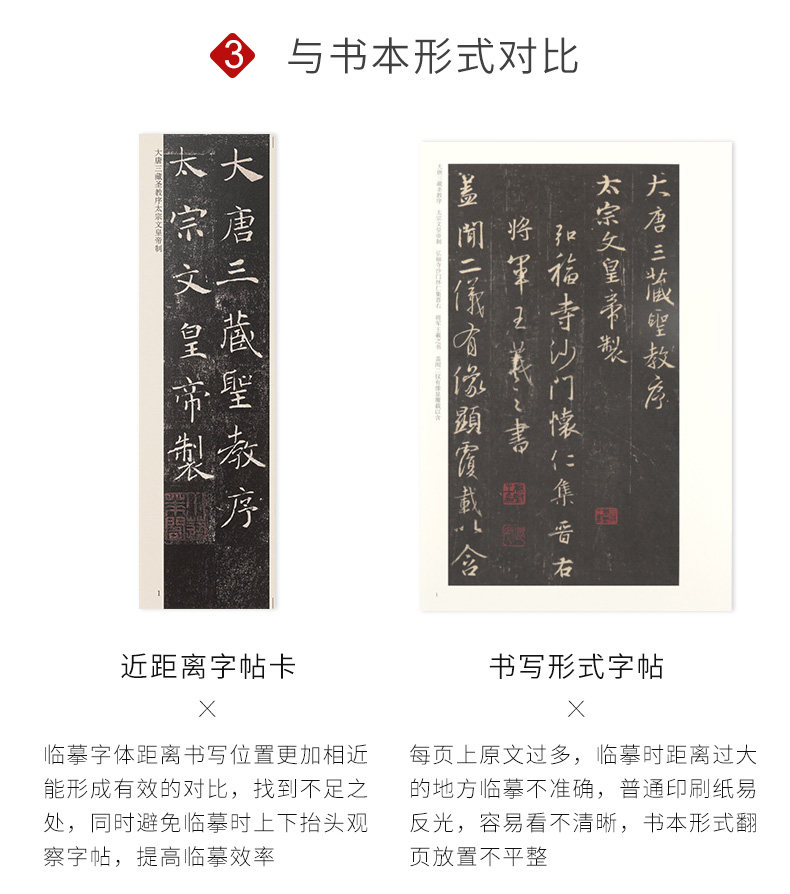 3 与书本形式对比
大唐三藏圣教序太宗文皇帝制
大唐三藏聖教序
太宗文皇帝製
1
大唐三藏聖教序
太宗文皇帝製
弘福寺沙门懷仁集晋右
将軍王羲之書
蓋聞二儀有像顯覆載以含
1
近距离字帖卡
×
临摹字体距离书写位置更加相近
能形成有效的对比，找到不足之
处，同时避免临摹时上下抬头观
察字帖，提高临摹效率
书写形式字帖
×
每页上原文过多，临摹时距离过大
的地方临摹不准确，普通印刷纸易
反光，容易看不清晰，书本形式翻
页放置不平整